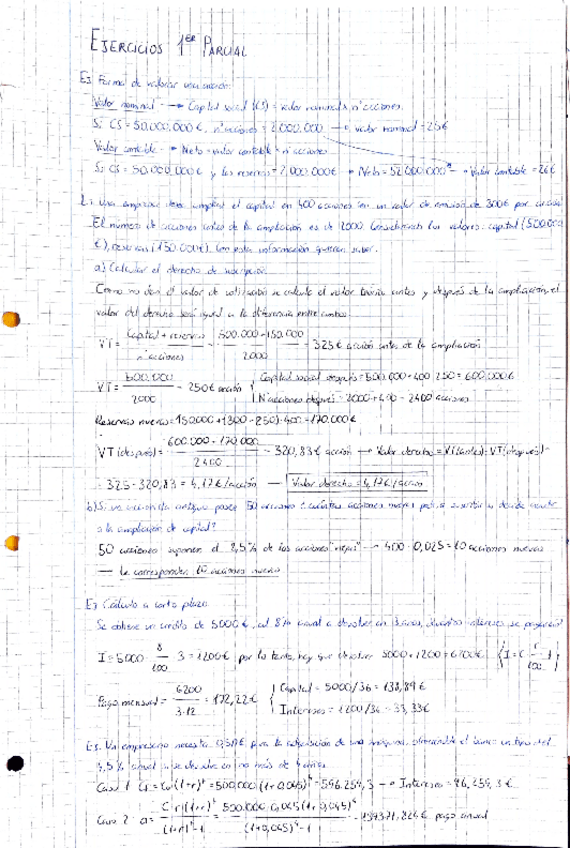 EJERCICIOS 1ER PARCIAL
Ej. Forma de valorar una acción:
Valor nominal → Capital social (CS) = valor nominal x nº acciones.
Si CS = 50.000.000 €, nº acciones = 2.000.000 → valor nominal = 25€
Valor contable → Neto = valor contable · nº acciones
Si CS = 50.000.000 € y las reservas = 2.000.000 → Neto = 52.000.000 → Valor contable = 26€
una empresa desea ampliar el capital en 400 acciones con un valor de emisión de 300€ por acción
El número de acciones antes de la ampliación es de 2000. los valores: capital (500.000
€), reservas (150.000€). Con esta información quieren saber:
a) Calcular el derecho de suscripción.
Como no dan el valor de cotización se calcula el valor teórico antes y después de la ampliación, el
valor del derecho será igual a la diferencia entre ambos.
VT = Capital + reservas / nº acciones = 500.000 + 150.000 / 2000 = 325€ acción antes de la ampliación
VT = 500.000 / 2000 = 250€ acción
Capital social después = 500.000 + 400 · 250 = 600.000€
Nº acciones después = 2000 + 400 = 2400 acciones
Reservas nuevas = 150000 + (300 - 250) · 400 = 170.000€
VT (después) = 600.000 + 170.000 / 2400 = 320,83€ acción → Valor derecho = VT (antes) - VT (después) =
= 325 - 320,83 = 4,17€/acción — Valor derecho = 4,17€/acción
b) Si un accionista antiguo posee 50 acciones ¿cuántas acciones nuevas podrá suscribir si decide acudir
a la ampliación de capital?
50 acciones suponen el 2,5% de las acciones "viejas" → 400 · 0,025 = 10 acciones nuevas
— Le corresponden 10 acciones nuevas
Ej. Cálculo a corto plazo
Se obtiene un crédito de 5000€, al 8% anual a devolver en 3 años, ¿cuántos intereses se pagarán?
I = 5000 · 8/100 · 3 = 1200€ por lo tanto, hay que devolver 5000 + 1200 = 6200€
Pago mensual = 6200 / 3·12 = 172,22€
Capital = 5000/36 = 138,89€
Intereses = 1200/36 = 33,33€
Ej. Un empresario necesita 0,5M€ para la adquisición de una máquina, el banco un tipo del
4,5% anual a en no más de 4 años.
Caso 1 = 500.000 (1+0,045)⁴ = 596.259,3 → Intereses = 96.259,3€
Caso 2 = 500.000 · 0,045 (1+0,045)⁴ / (1+0,045)⁴ - 1 = pago anual